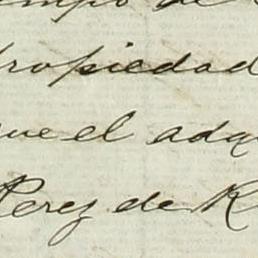 mpo de
propiedad
que el adq
Perez de R